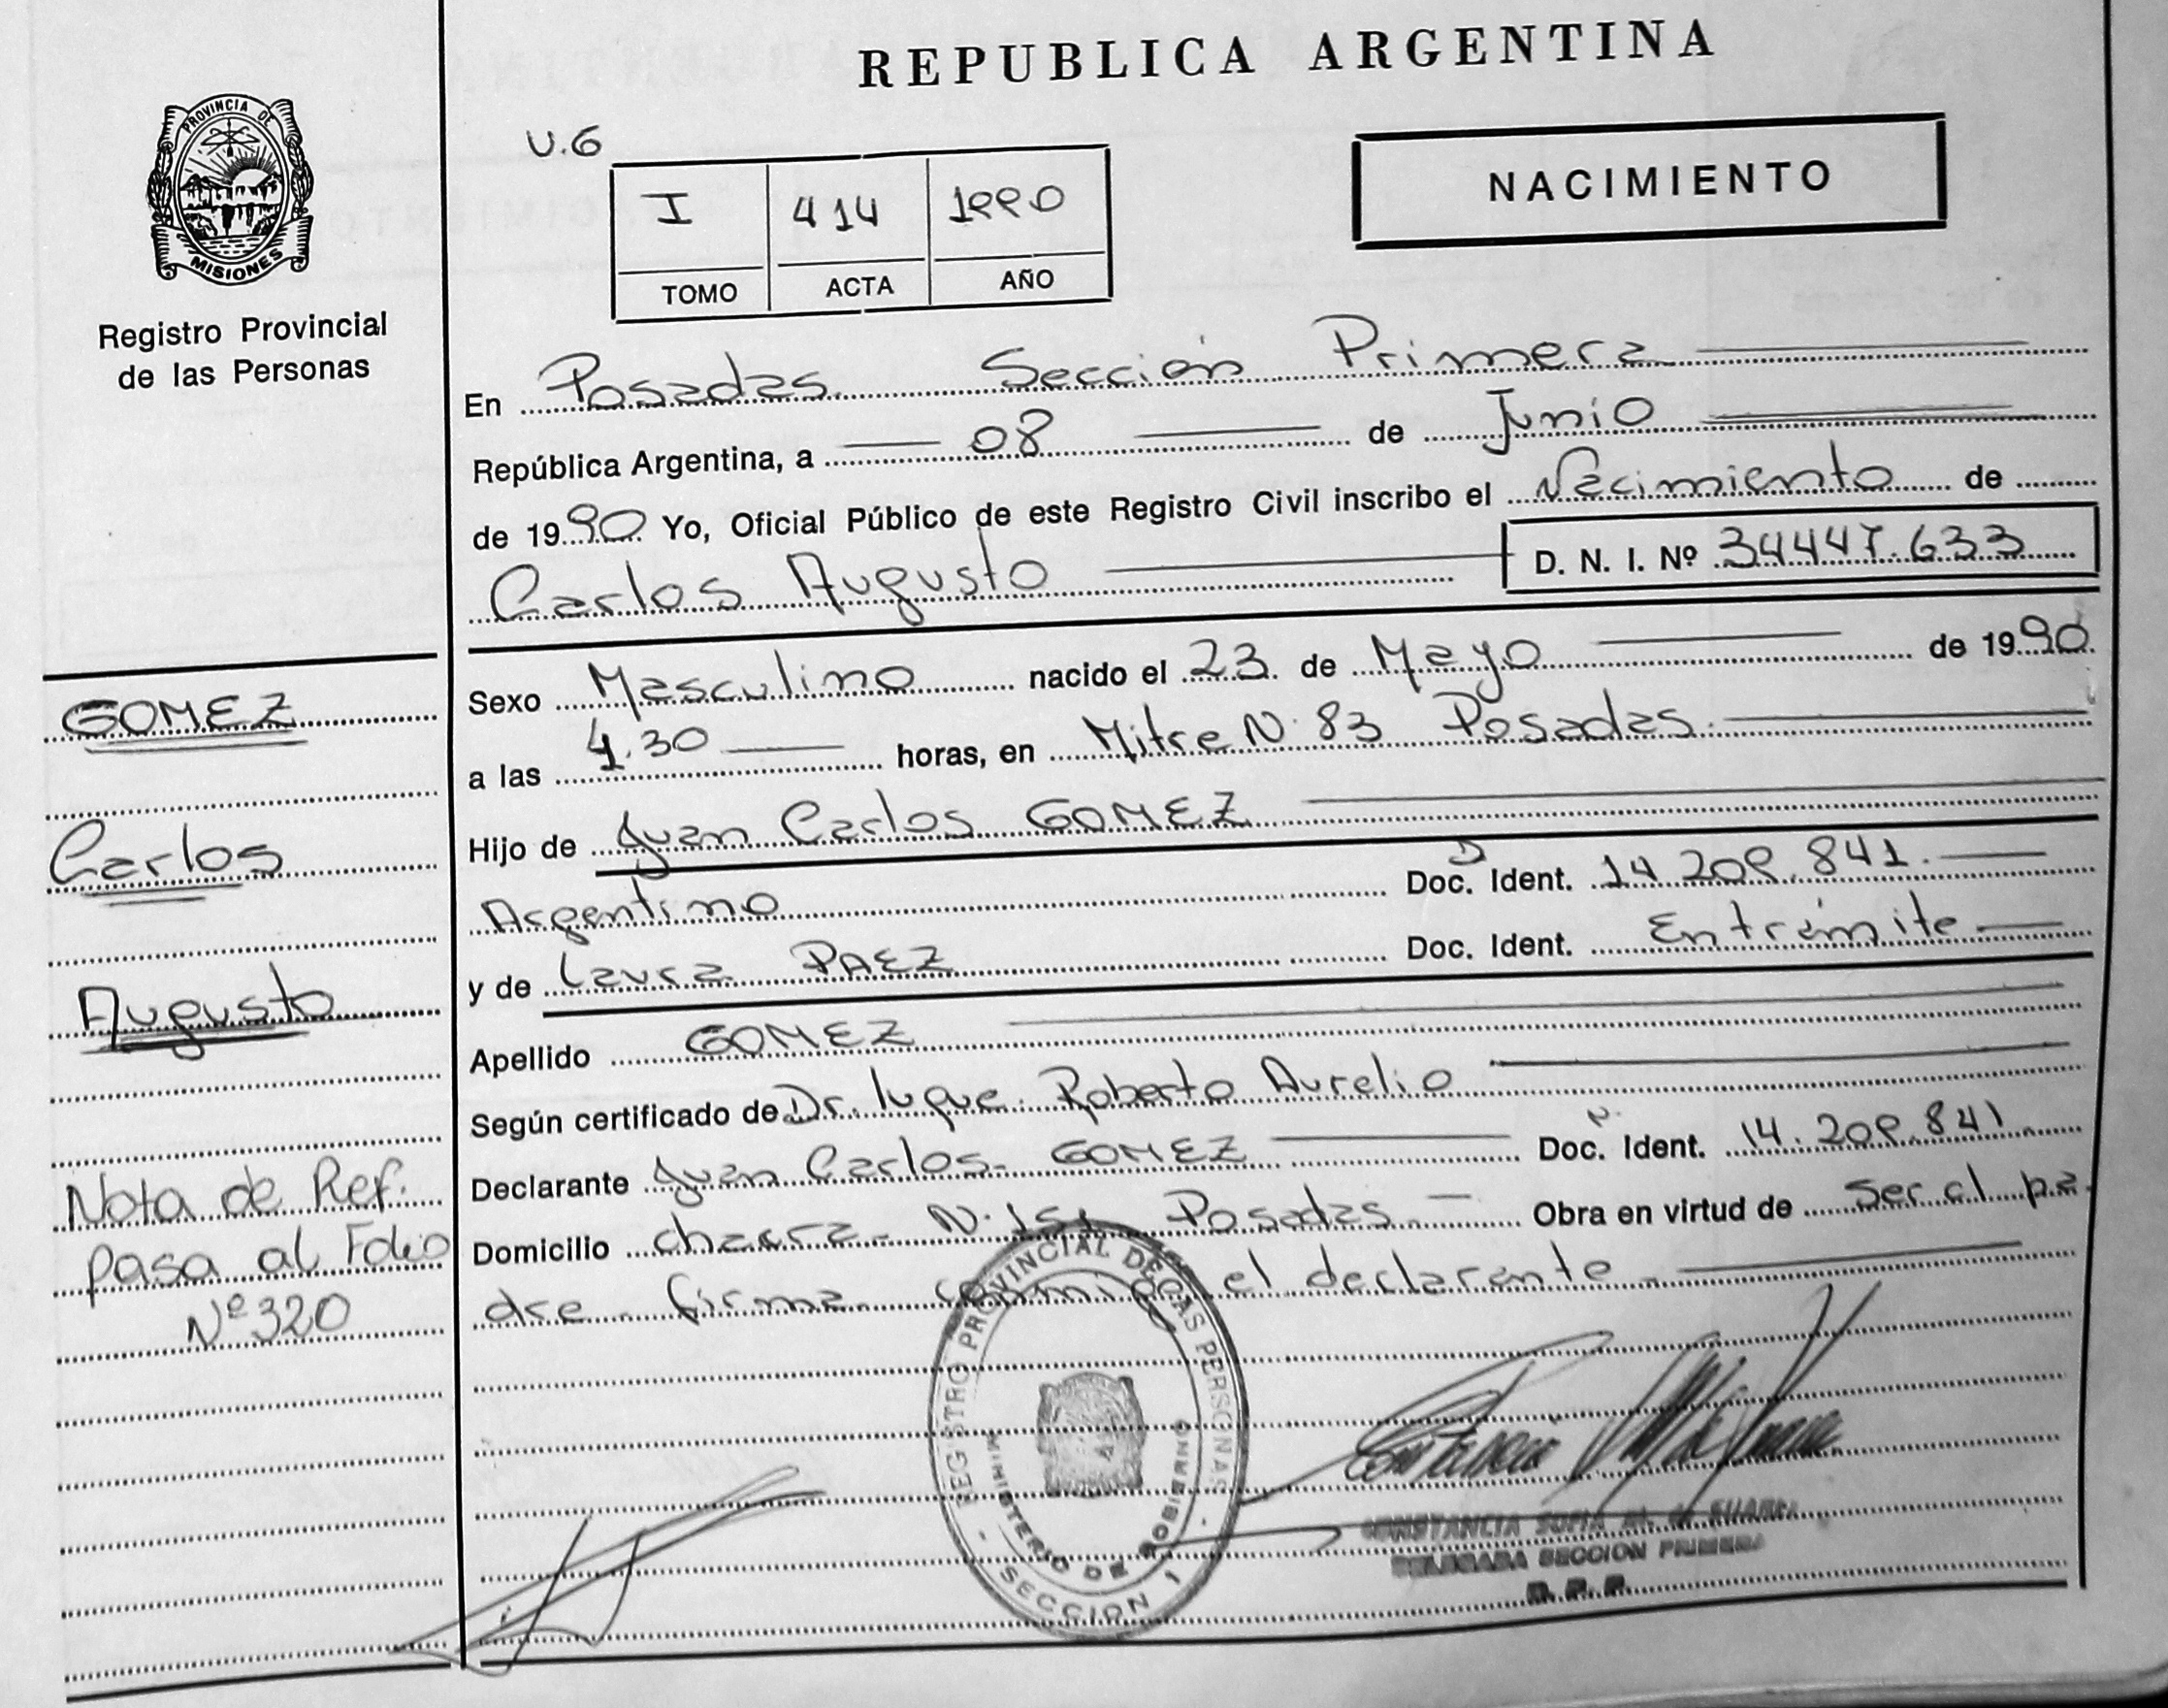 REPUBLICA ARGENTINA
PROVINCIA DE
MISIONES
Registro Provincial
de las Personas
U.6
I 414 1990
TOMO ACTA AÑO
NACIMIENTO
En Posadas Sección Primera
República Argentina, a 08 de Junio
de 1990 Yo, Oficial Público de este Registro Civil inscribo el Nacimiento de
Carlos Augusto D. N. I. Nº 34447.633
Sexo Masculino nacido el 23 de Mayo de 1990
a las 4.30 horas, en Mitre N. 83 Posadas.
Hijo de Juan Carlos GOMEZ
Argentino Doc. Ident. 14 209.841.
y de Laura PAEZ Doc. Ident. En trámite
Apellido GOMEZ
Según certificado de Dr. luque Roberto Aurelio
Declarante Juan Carlos GOMEZ Doc. Ident. 14.209.841
Domicilio chacra N. 151 Posadas Obra en virtud de ser el pa
dre firma conmigo el declarante
GOMEZ
Carlos
Augusto
Nota de Ref.
pasa al Folio
Nº 320
REGISTRO PROVINCIAL DE LAS PERSONAS
MINISTERIO DE GOBIERNO
SECCION 1
CONSTANCIA SOFIA M. de
DELEGADA SECCION PRIMERA
R. P. P.